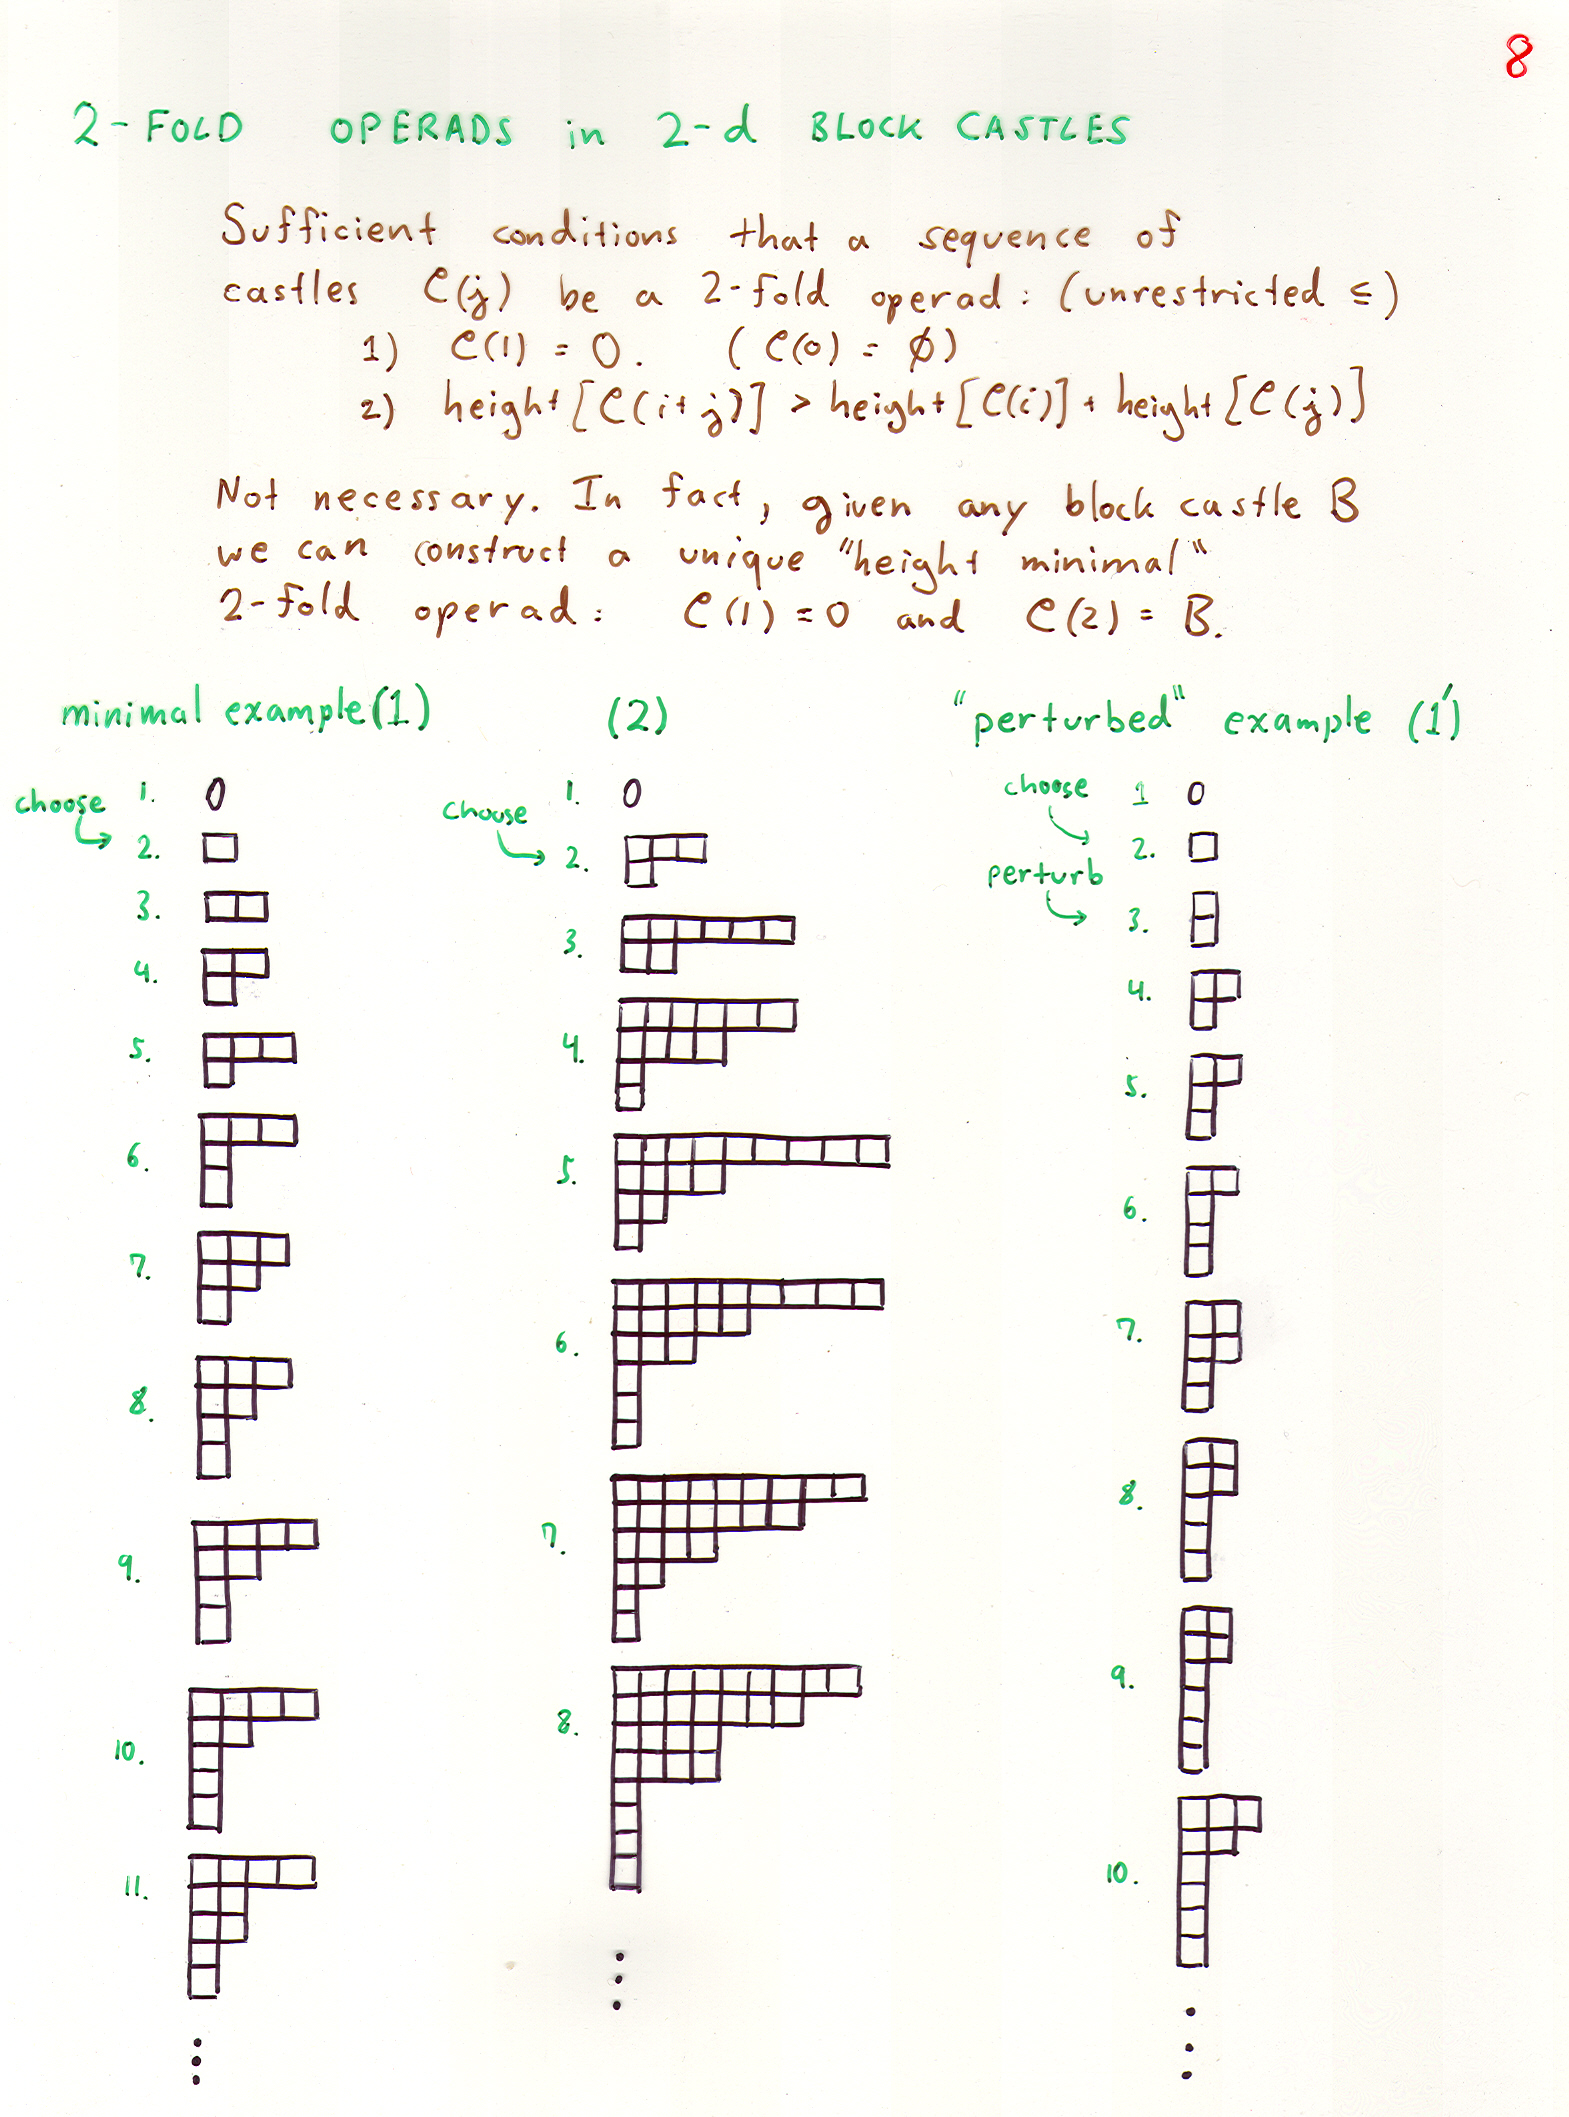 8
2-FOLD OPERADS in 2-d BLOCK CASTLES
Sufficient conditions that a sequence of
castles C(j) be a 2-fold operad: (unrestricted ≤)
1) C(1) = 0. (C(0) = ∅)
2) height[C(i+j)] > height[C(i)] + height[C(j)]
Not necessary. In fact, given any block castle B
we can construct a unique "height minimal"
2-fold operad: C(1) = 0 and C(2) = B.
minimal example (1)
choose
1. 0
2.
3.
4.
5.
6.
7.
8.
9.
10.
11.
(2)
choose
1. 0
2.
3.
4.
5.
6.
7.
8.
"perturbed" example (1')
choose
perturb
1 0
2.
3.
4.
5.
6.
7.
8.
9.
10.